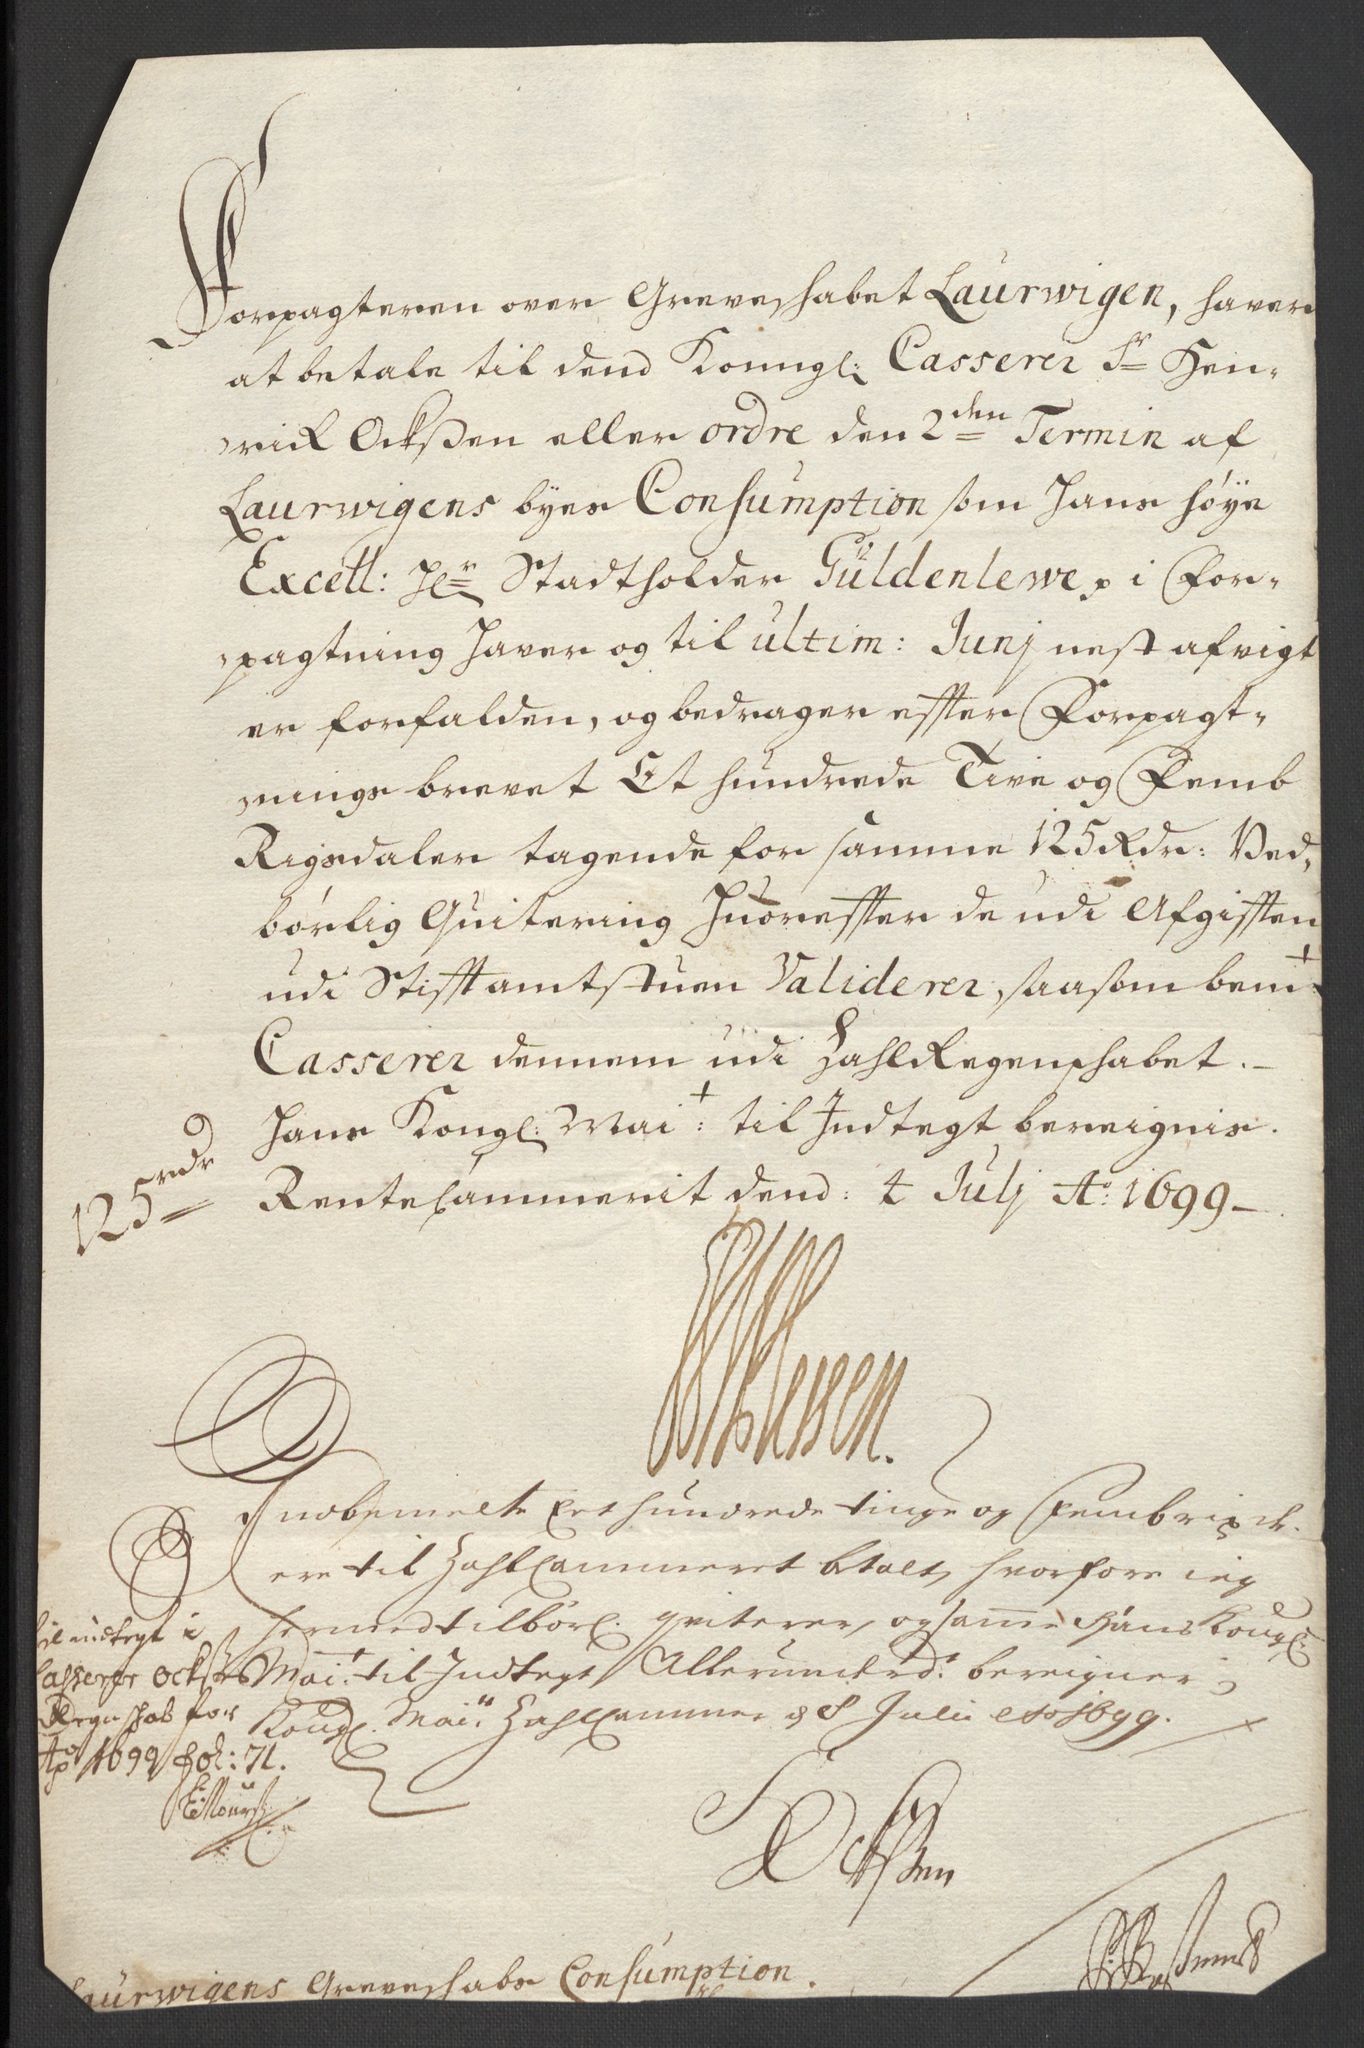 Forpagteren over Greveskabet Laurwigen, haver
at betale til dend Konngl: Casserer Sr Hen-
rick Ockßen eller ordre den 2den Termin af
Laurwigens byes Consumption som Hans höye
Excell: Hr Stadtholder Güldenlewe p i For-
pagtning haver og til ultim: Junj nest afvigt
er forfalden, og bedrager effter Forpagt-
nings brevet Et hundrede Tive og Femb
Rigsdaler tagende for samme 125 Rdr: Ved-
börlig Quitering huoreffter de udi Afgifften
udi Stifftamtstuen Validerer, saasom bemt
Casserer dennem udi Zahl Regenskabet.-
Hans Kongl: Mait: til Indtegt bereignis.
RenteCammerit dend: 4 Julj Ao: 1699-
125 rdr
Indbemelte Et hundrede tiuge og femb rixdr.
ere til ZahlCammeret btalt, hvorfore ieg
hermed tilbörl. qviterer, og samme Hans Kongl:
Mait. til Indtegt Allerunderd:t bereigner
Kongl. Maits. ZahlCammer d 8 Julii Ao 1699.
til indtegt i
Casserer Ockßens
Regnskab for
Ao 1699 fol: 71.
Ockßen
Laurwigens Greveskabs Consumption.